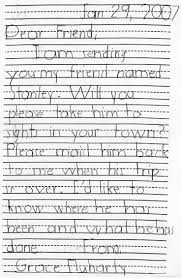 Jan 29, 2007
Dear Friend,
I am sending
you my friend named
Stanley. Will you
please take him to
sights in your town?
Please mail him back
to me when his trip
is over. I'd like to
know where he has
been and what he has
done. From,
Grace Fluharty